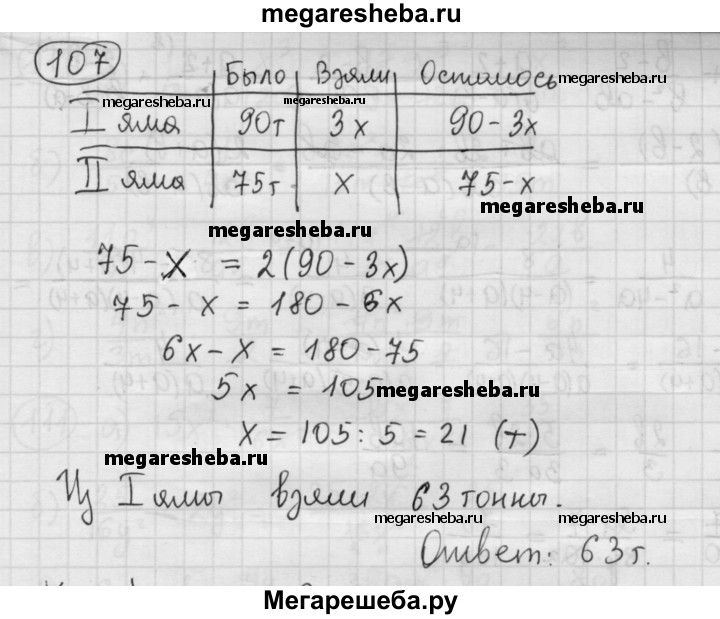 megaresheba.ru
107
Было Взяли Осталось
megaresheba.ru megaresheba.ru megaresheba.ru
I яма 90т 3x 90 - 3x
II яма 75т x 75 - x
megaresheba.ru
megaresheba.ru
75 - x = 2(90 - 3x)
75 - x = 180 - 6x
6x - x = 180 - 75
5x = 105
megaresheba.ru
x = 105 : 5 = 21 (т)
megaresheba.ru
Из I ямы взяли 63 тонны.
megaresheba.ru megaresheba.ru
Ответ: 63т.
Мегарешеба.ру